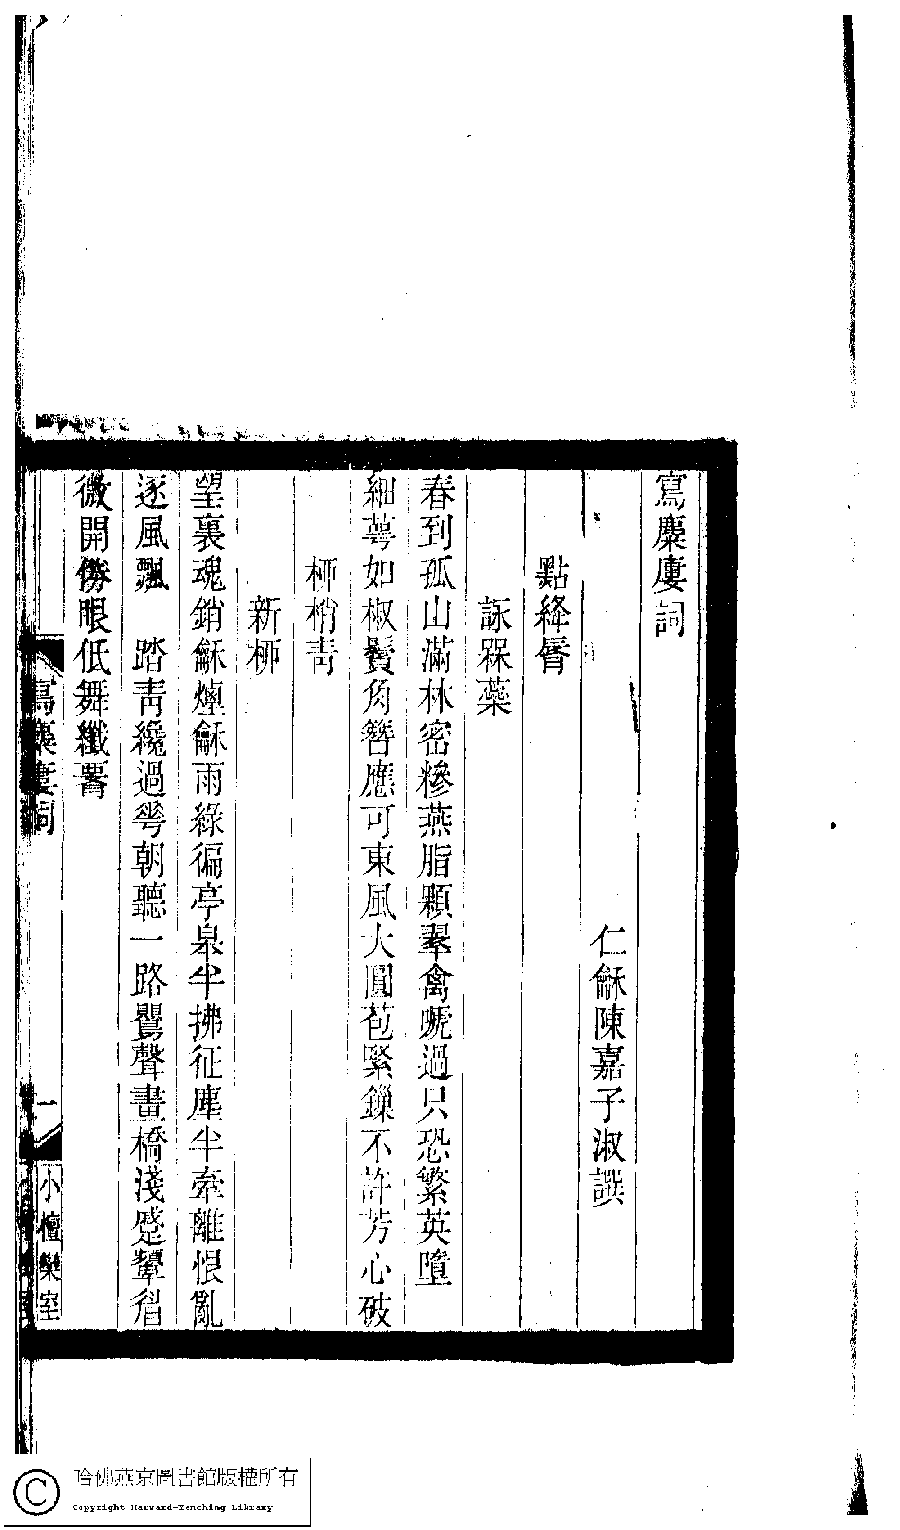 寫麋廔詞
仁龢陳嘉子淑譔
點絳脣
詠槑蘂
春到孤山滿林密糝燕脂顆翠禽唬過只恐繁英墮
細萼如椒鬢角簪應可東風大圓苞緊鏁不許芳心破
桺梢靑
新桺
望裏魂銷龢煙龢雨綠徧亭皋半拂征塵半牽離恨亂
逐風飄　踏靑纔過花朝聽一路鸎聲畫橋淺蹙顰眉
微開倦眼低舞纖署
寫麋廔詞
一
小檀欒室
哈佛燕京圖書館版權所有
Copyright Harvard-Yenching Library